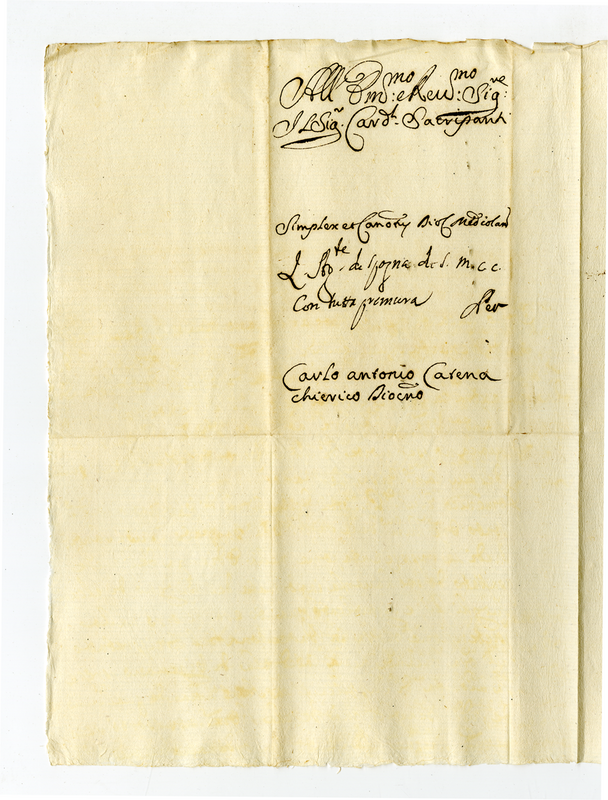 All Em:mo e Reu:mo Sig:re
Il Sig:r Card:l Sacripanti
Simplex et Canon: Dioc Mediolan
de s. m. c. c.
Con tutta premura Per
Carlo antonio Catena
chierico Diocno